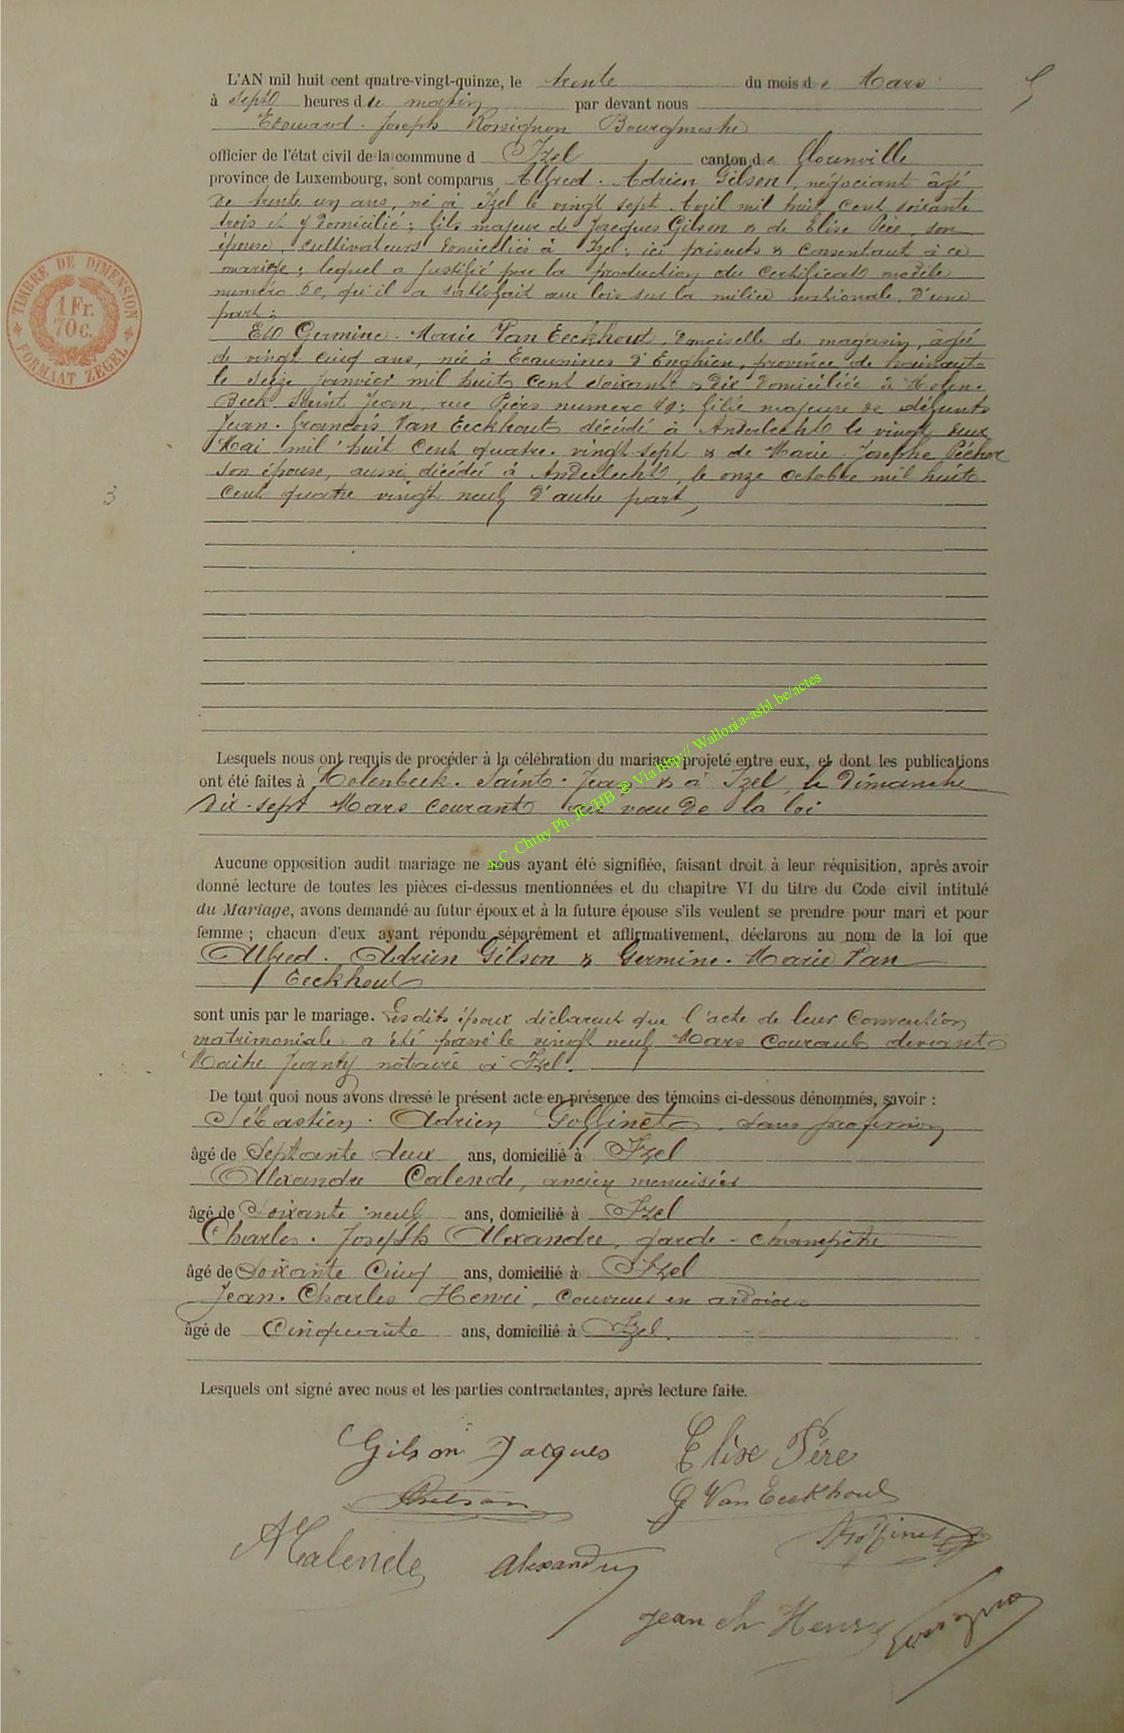 5
L'AN mil huit cent quatre-vingt-quinze, le trente du mois de Mars
à sept heures du matin par devant nous
Edouard. Joseph Rossignon Bourgmestre
officier de l'état civil de la commune d Izel canton de Florenville
province de Luxembourg, sont comparus Alfred. Adrien Gilson, négociant âgé
de trente un ans, né à Izel le vingt sept Avril mil huit cent soixante
trois et y domicilié; fils majeur de Jacques Gilson & de Elise Père, son
épouse cultivateurs domiciliés à Izel; ici présents & consentant à ce
mariage; lequel a justifié par la production du certificat modèle
numéro 50, qu'il a satisfait aux lois sur la milice nationale, d'une
part;
Et Germine. Marie Van Eeckhout, demoiselle de magasin, âgé
de vingt cinq ans, née à Ecaussines d'Enghien, province de hainaut
le seize janvier mil huit cent soixante & dix domiciliée à Molen-
Beek Saint Jean, rue numero 49; fille majeure de défunts
Jean. François Van Eeckhout décédé à Anderlecht le vingt deux
Mai mil huit cent quatre. vingt sept & de Marie. Josephe Péchet
son épouse, aussi décédée à Anderlecht, le onze octobre mil huit
cent quatre vingt neuf d'autre part,
3
TIMBRE DE DIMENSION
1 Fr.
70 c.
FORMAAT ZEGEL
Lesquels nous ont requis de procéder à la célébration du mariage projeté entre eux, et dont les publications
ont été faites à Molenbeek. Saint. Jean & à Izel, le Dimanche
Dix-sept Mars courant au vœu de la loi
A.C. Chiny Ph. JC/HB @ Via http:// Wallonia-asbl.be/actes
Aucune opposition audit mariage ne nous ayant été signifiée, faisant droit à leur réquisition, après avoir
donné lecture de toutes les pièces ci-dessus mentionnées et du chapitre VI du titre du Code civil intitulé
du Mariage, avons demandé au futur époux et à la future épouse s'ils veulent se prendre pour mari et pour
femme ; chacun d'eux ayant répondu séparément et affirmativement, déclarons au nom de la loi que
Alfred. Adrien Gilson & Germine. Marie Van
Eeckhout
sont unis par le mariage. Lesdits époux déclarent que l'acte de leur Convention
matrimoniale a été passé le vingt neuf Mars courant devant
Maitre Jeanty notaire à Izel.
De tout quoi nous avons dressé le présent acte en présence des témoins ci-dessous dénommés, savoir :
Sébastien. Adrien Goffinet, sans profession
âgé de Septante deux ans, domicilié à Izel
Alexandre Calende, ancien menuisier
âgé de Soixante neuf ans, domicilié à Izel
Charles. Joseph Alexandre, garde-champêtre
âgé de Soixante Cinq ans, domicilié à Izel
Jean. Charles Henri, couvreur en ardoises
âgé de Cinquante ans, domicilié à Izel.
Lesquels ont signé avec nous et les parties contractantes, après lecture faite.
Gilson Jacques Elise Père
AGilson G Van Eeckhout
Goffinet
A Calende Alexandre
jean ch Henri Rossignon